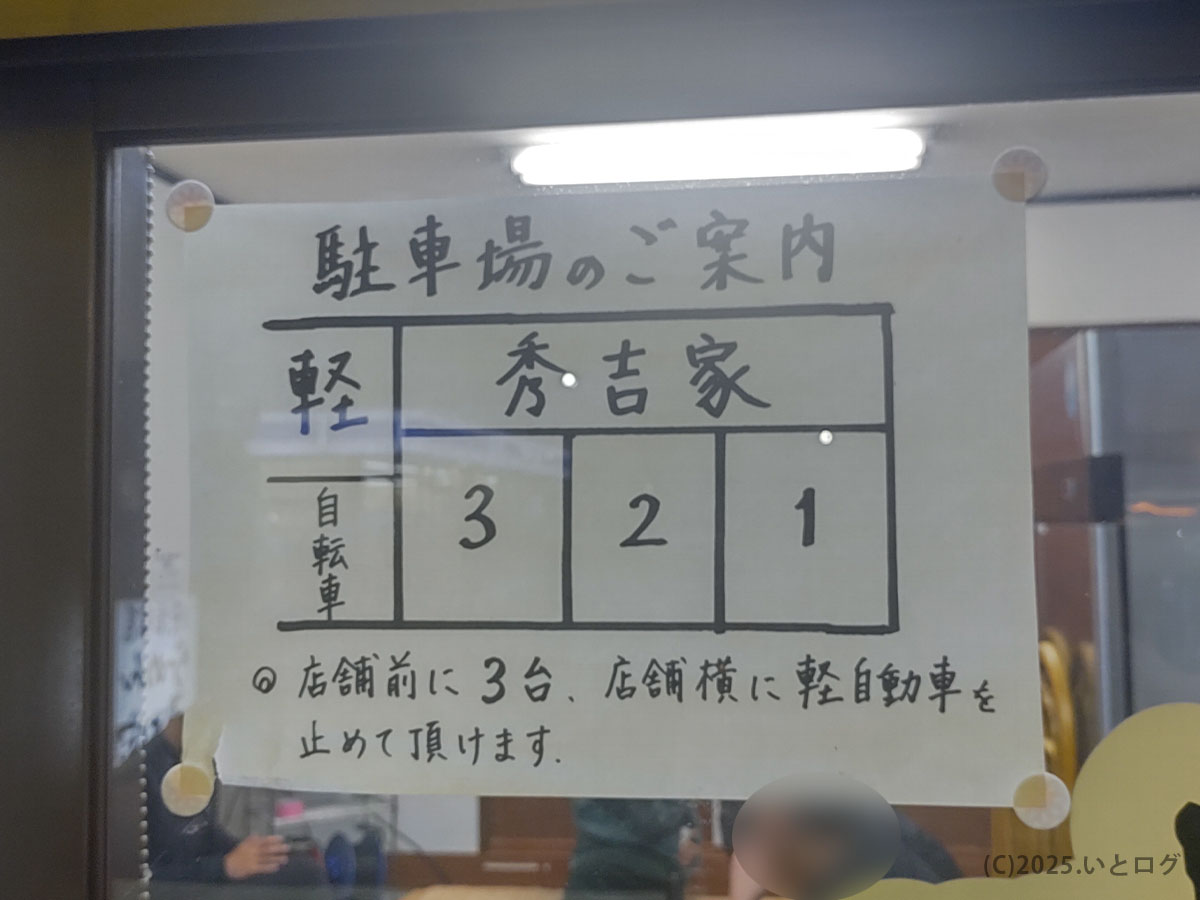 駐車場のご案内
軽
秀吉家
自転車
3
2
1
◎店舗前に3台、店舗横に軽自動車を
止めて頂けます.
(C)2025.いとログ